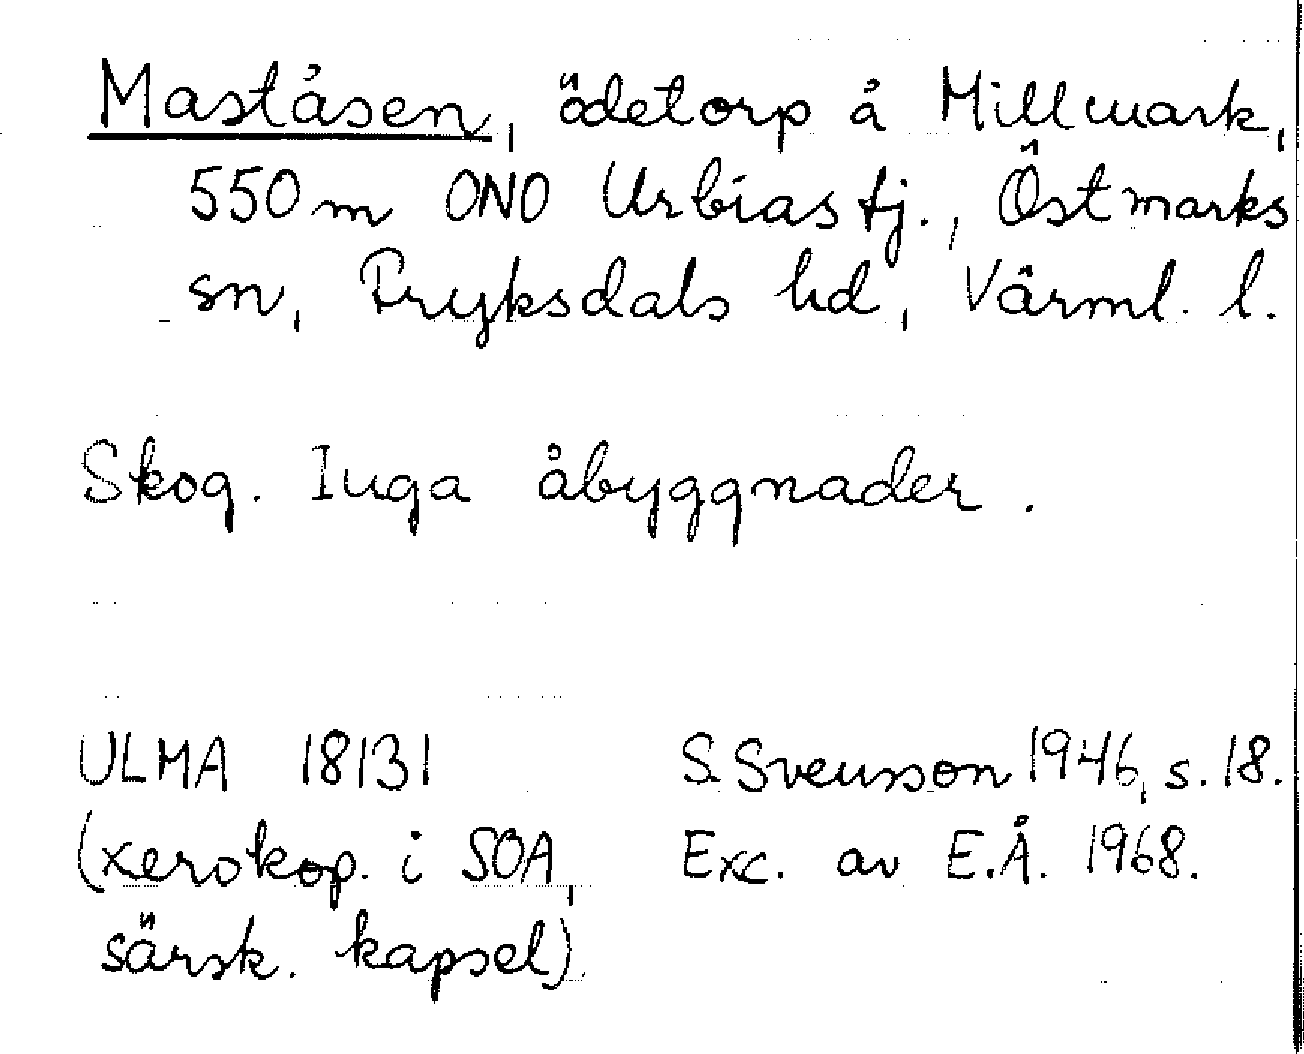 Maståsen, ödetorp å Millmark,
550 m ONO Urbiastj., Östmarks
sn, Fryksdals hd, Värml. l.
Skog. Inga åbyggnader.
ULMA 18131
(xerokop. i SOA,
särsk. kapsel).
S. Svensson 1946, s. 18.
Exc. av E.Å. 1968.